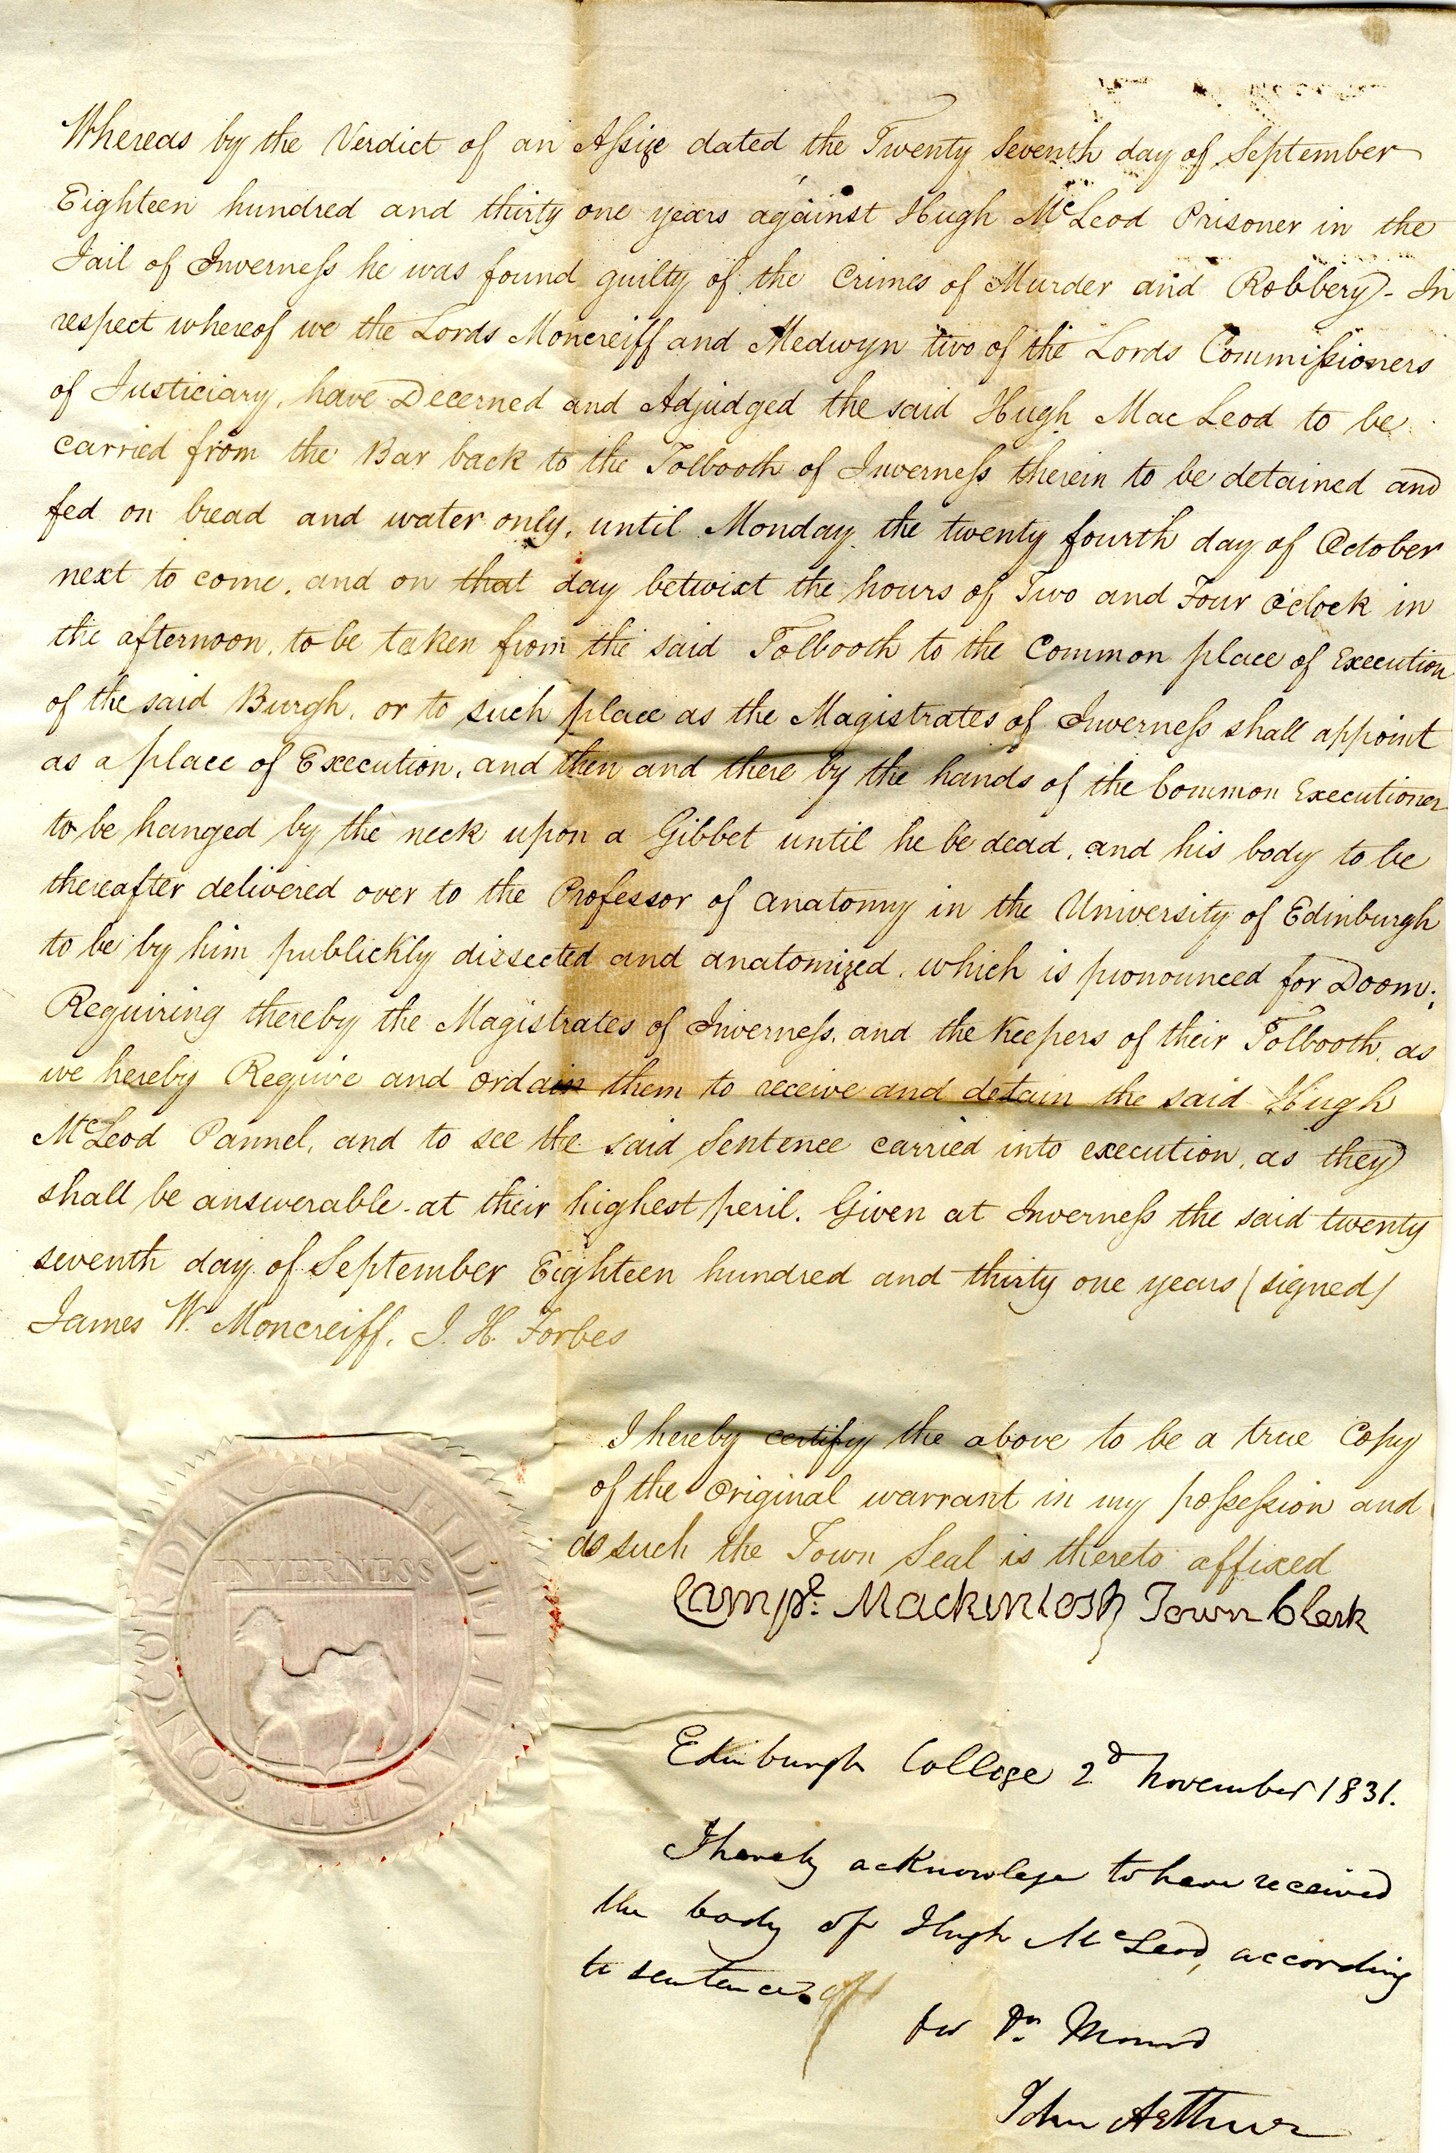 Whereas by the Verdict of an Assize dated the Twenty Seventh day of September
Eighteen hundred and thirty one years against Hugh McLeod Prisoner in the
Jail of Inverness he was found guilty of the Crimes of Murder and Robbery - In
respect whereof we the Lords Moncreiff and Medwyn two of the Lords Commissioners
of Justiciary, have Decerned and Adjudged the said Hugh MacLeod to be
carried from the Bar back to the Tolbooth of Inverness therein to be detained and
fed on bread and water only, until Monday the twenty fourth day of October
next to come, and on that day betwixt the hours of Two and Four o'clock in
the afternoon, to be taken from the said Tolbooth to the Common place of Execution
of the said Burgh, or to such place as the Magistrates of Inverness shall appoint
as a place of Execution, and then and there by the hands of the Common Executioner
to be hanged by the neck upon a Gibbet until he be dead, and his body to be
thereafter delivered over to the Professor of Anatomy in the University of Edinburgh
to be by him publickly dissected and anatomized, which is pronounced for Doom;
Requiring thereby the Magistrates of Inverness, and the Keepers of their Tolbooth, as
we hereby Require and Ordain them to receive and detain the said Hugh
McLeod Pannel, and to see the said Sentence carried into execution, as they
shall be answerable at their highest peril. Given at Inverness the said twenty
seventh day of September Eighteen hundred and thirty one years (signed)
James W. Moncreiff, J. H. Forbes
I hereby certify the above to be a true Copy
of the Original warrant in my possession and
as such the Town Seal is thereto affixed
Campl. Mackintosh Town Clerk
CONCORDIA ET FIDELITAS
INVERNESS
Edinburgh College 2d November 1831.
I hereby acknowlege to have received
the body of Hugh McLeod, according
to sentence.
for Dr. Monro
John Arthur